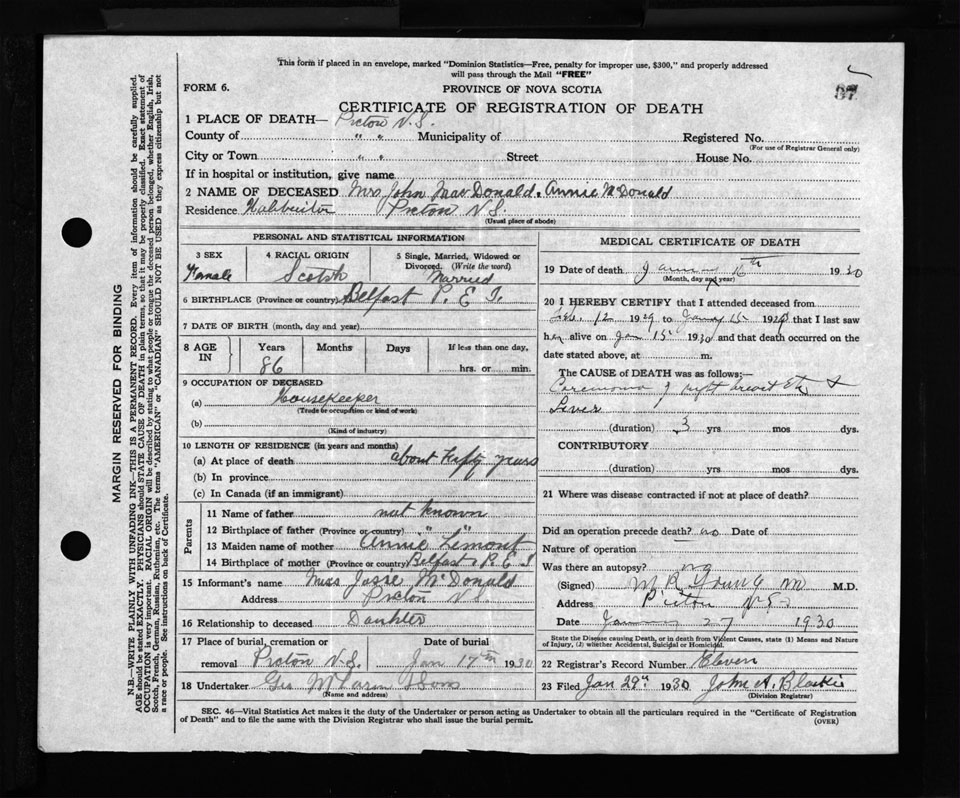 This form if placed in an envelope, marked "Dominion Statistics—Free, penalty for improper use, $300," and properly addressed
will pass through the Mail "FREE"
FORM 6.
PROVINCE OF NOVA SCOTIA
37
CERTIFICATE OF REGISTRATION OF DEATH
1 PLACE OF DEATH— Pictou N.S.
County of " " Municipality of Registered No.
(For use of Registrar General only)
City or Town " " Street House No.
If in hospital or institution, give name
2 NAME OF DECEASED Mrs John MacDonald. Annie McDonald
Residence Pictou N.S.
(Usual place of abode)
PERSONAL AND STATISTICAL INFORMATION
3 SEX 4 RACIAL ORIGIN 5 Single, Married, Widowed or
Divorced. (Write the word)
Female Scotch Married
6 BIRTHPLACE (Province or country) Belfast P. E I.
7 DATE OF BIRTH (month, day and year)
8 AGE IN Years Months Days If less than one day,
86 hrs. or min.
9 OCCUPATION OF DECEASED
(a) Housekeeper
(Trade or occupation or kind of work)
(b)
(Kind of industry)
10 LENGTH OF RESIDENCE (in years and months)
(a) At place of death about Fifty years
(b) In province
(c) In Canada (if an immigrant)
Parents
11 Name of father not known
12 Birthplace of father (Province or country) " "
13 Maiden name of mother Annie Lemont
14 Birthplace of mother (Province or country) Belfast P.E.I
15 Informant's name Miss McDonald
Address Pictou N.S.
16 Relationship to deceased Daughter
17 Place of burial, cremation or Date of burial
removal Pictou N.S. Jan 17th 1930
18 Undertaker Geo & Sons
(Name and address)
MEDICAL CERTIFICATE OF DEATH
19 Date of death January 16th 1930
(Month, day and year)
20 I HEREBY CERTIFY that I attended deceased from
12 1929 to 15 that I last saw
her alive on Jan 15 1930 and that death occurred on the
date stated above, at m.
The CAUSE of DEATH was as follows:—
of right breast
Liver
(duration) 3 yrs mos dys.
CONTRIBUTORY
(duration) yrs mos dys.
21 Where was disease contracted if not at place of death?
Did an operation precede death? no Date of
Nature of operation
Was there an autopsy? no
(Signed) M R Young M.D.
Address Pictou N.S.
Date January 27 1930
State the Disease causing Death, or in death from Violent Causes, state (1) Means and Nature
of Injury, (2) whether Accidental, Suicidal or Homicidal.
22 Registrar's Record Number Eleven
23 Filed Jan 29th 1930 John A.
(Division Registrar)
SEC. 46—Vital Statistics Act makes it the duty of the Undertaker or person acting as Undertaker to obtain all the particulars required in the "Certificate of Registration
of Death" and to file the same with the Division Registrar who shall issue the burial permit.
(OVER)
MARGIN RESERVED FOR BINDING
N.B.—WRITE PLAINLY WITH UNFADING INK—THIS IS A PERMANENT RECORD. Every item of information should be carefully supplied.
AGE should be stated EXACTLY. PHYSICIANS should STATE CAUSE OF DEATH in plain terms, so that it may be properly classified. Exact statement of
OCCUPATION is very important. RACIAL ORIGIN will be described by stating to what people or tongue the deceased person belonged, whether English, Irish,
Scotch, French, German, Russian, Ruthenian, etc. The terms "AMERICAN" or "CANADIAN" SHOULD NOT BE USED as they express citizenship but not
a race or people. See instructions on back of Certificate.